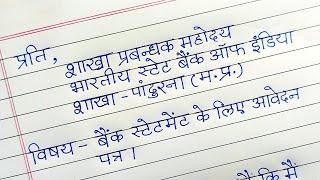 प्रति,
शाखा प्रबन्धक महोदय
भारतीय स्टेट बैंक ऑफ इंडिया
शाखा - पांढुरना (म.प्र.)
विषय - बैंक स्टेटमेंट के लिए आवेदन
पत्र।
है कि मैं